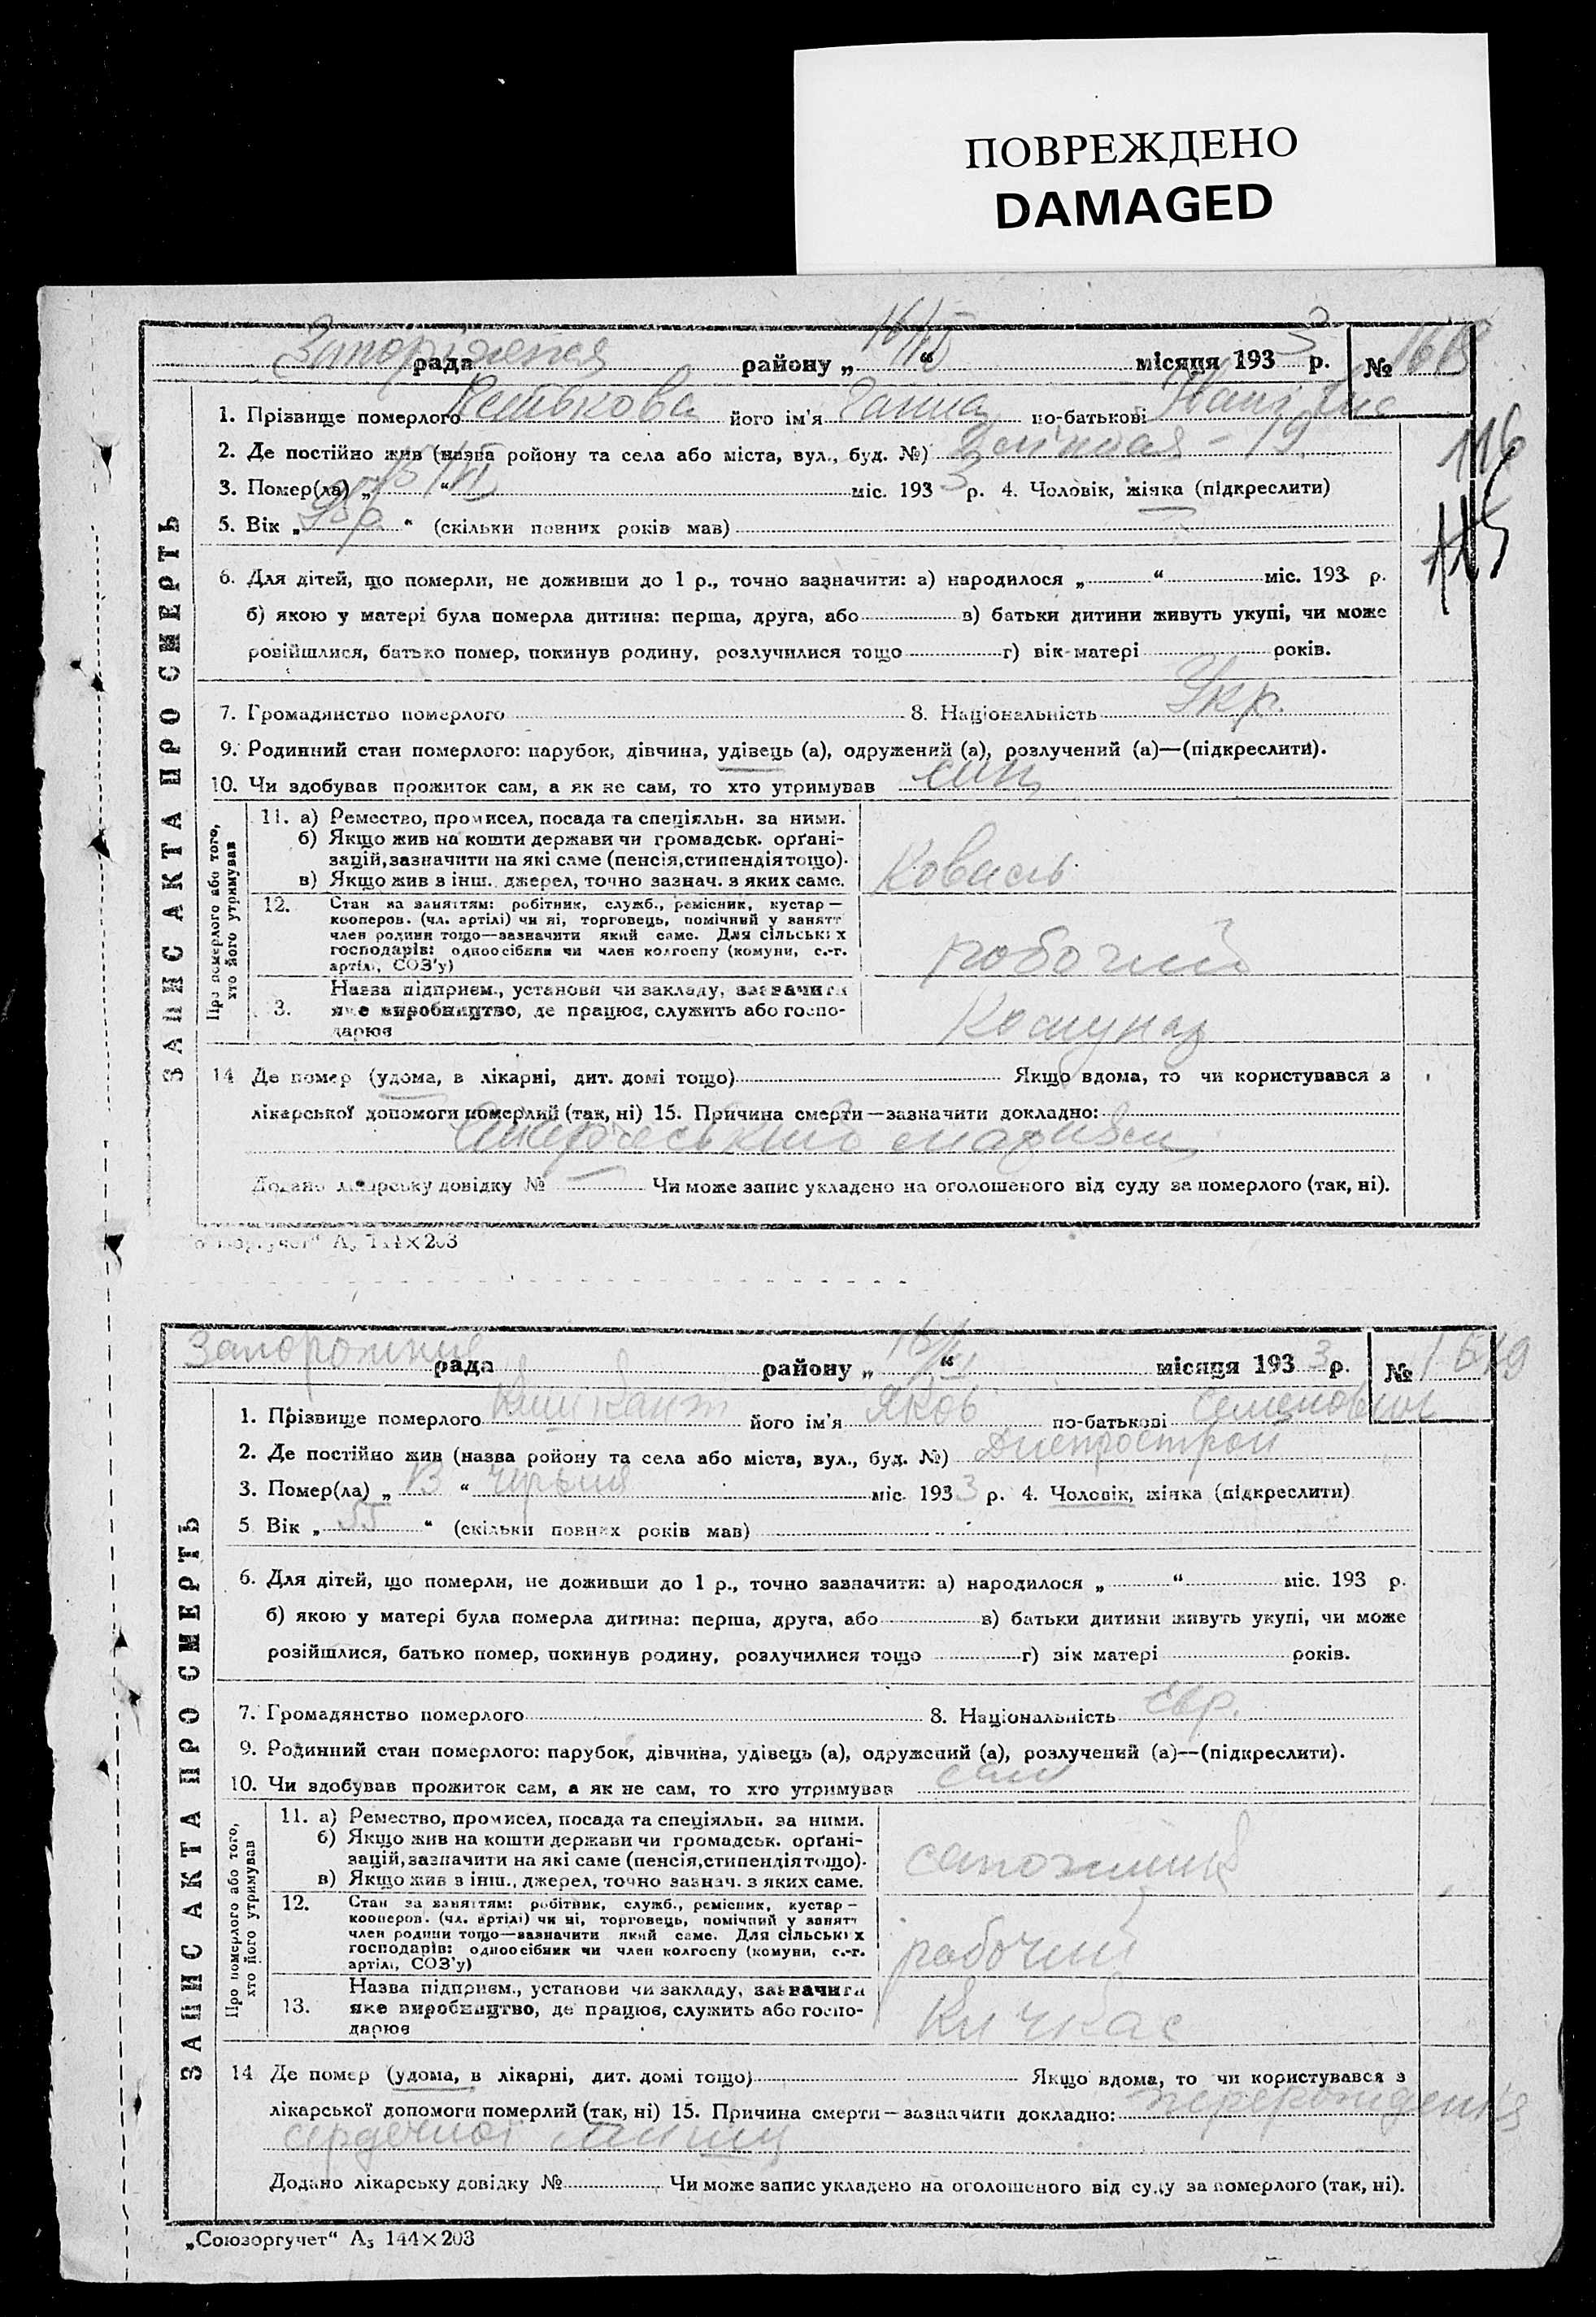 ПОВРЕЖДЕНО
DAMAGED
рада району „16/VI“ місяця 1933 р. №
1. Прізвище померлого його ім'я Ганна по-батькові
2. Де постійно жив (назва ройону та села або міста, вул., буд. №) – 19
3. Помер(ла) „ “ міс. 1933 р. 4. Чоловік, жінка (підкреслити)
5. Вік „ “ (скільки повних років мав)
116
115
6. Для дітей, що померли, не доживши до 1 р., точно зазначити: а) народилося „ “ міс. 193 р.
б) якою у матері була померла дитина: перша, друга, або в) батьки дитини живуть укупі, чи може
розійшлися, батько помер, покинув родину, розлучилися тощо г) вік матері років.
7. Громадянство померлого 8. Національність Укр.
9. Родинний стан померлого: парубок, дівчина, удівець (а), одружений (а), розлучений (а)—(підкреслити).
10. Чи здобував прожиток сам, а як не сам, то хто утримував син
Про померлого або того, хто його утримував
11. а) Ремество, промисел, посада та спеціяльн. за ними.
б) Якщо жив на кошти держави чи громадськ. орґані-
зацій, зазначити на які саме (пенсія, стипендія тощо).
в) Якщо жив з інш. джерел, точно зазнач. з яких саме.
Коваль
12. Стан за заняттям: робітник, служб., ремісник, кустар —
кооперов. (чл. артілі) чи ні, торговець, помічний у занятт
член родини тощо—зазначити який саме. Для сільських
господарів: одноосібник чи член колгоспу (комуни, с.-г.
артілі, СОЗ'у)
робочий
Назва підприєм., установи чи закладу, зазначити
3. яке виробництво, де працює, служить або госпо-
дарює
Комунар
14 Де помер (удома, в лікарні, дит. домі тощо) Якщо вдома, то чи користувався з
лікарської допомоги померлий (так, ні) 15. Причина смерти—зазначити докладно:
Додано лікарську довідку № Чи може запис укладено на оголошеного від суду за померлого (так, ні).
ЗАПИС АКТА ПРО СМЕРТЬ
А₅ 144×203
рада району „16/VI“ місяця 1933 р. № 1619
1. Прізвище померлого його ім'я Яков по-батькові Семенович
2. Де постійно жив (назва ройону та села або міста, вул., буд. №) Днепрострой
3. Помер(ла) „13“ червня міс. 1933 р. 4. Чоловік, жінка (підкреслити)
5 Вік „55“ (скільки повних років мав)
6. Для дітей, що померли, не доживши до 1 р., точно зазначити: а) народилося „ “ міс. 193 р.
б) якою у матері була померла дитина: перша, друга, або в) батьки дитини живуть укупі, чи може
розійшлися, батько помер, покинув родину, розлучилися тощо г) вік матері років.
7. Громадянство померлого 8. Національність Евр.
9. Родинний стан померлого: парубок, дівчина, удівець (а), одружений (а), розлучений (а)—(підкреслити).
10. Чи здобував прожиток сам, а як не сам, то хто утримував сам
Про померлого або того, хто його утримував
11. а) Ремество, промисел, посада та спеціяльн. за ними.
б) Якщо жив на кошти держави чи громадськ. орґані-
зацій, зазначити на які саме (пенсія, стипендія тощо).
в) Якщо жив з інш., джерел, точно зазнач. з яких саме.
сапожник
12. Стан за заняттям: робітник, служб., ремісник, кустар —
кооперов. (чл. артілі) чи ні, торговець, помічний у занятт
член родини тощо—зазначити який саме. Для сільських
господарів: одноосібник чи член колгоспу (комуни, с.-г.
артілі, СОЗ'у)
рабочий
Назва підприєм., установи чи закладу, зазначити
13. яке виробництво, де працює, служить або госпо-
дарює
Кичкас
14 Де помер (удома, в лікарні, дит. домі тощо) Якщо вдома, то чи користувався з
лікарської допомоги померлий (так, ні) 15. Причина смерти—зазначити докладно: перерождения
сердечної
Додано лікарську довідку № Чи може запис укладено на оголошеного від суду за померлого (так, ні).
ЗАПИС АКТА ПРО СМЕРТЬ
„Союзоргучет“ А₅ 144×203